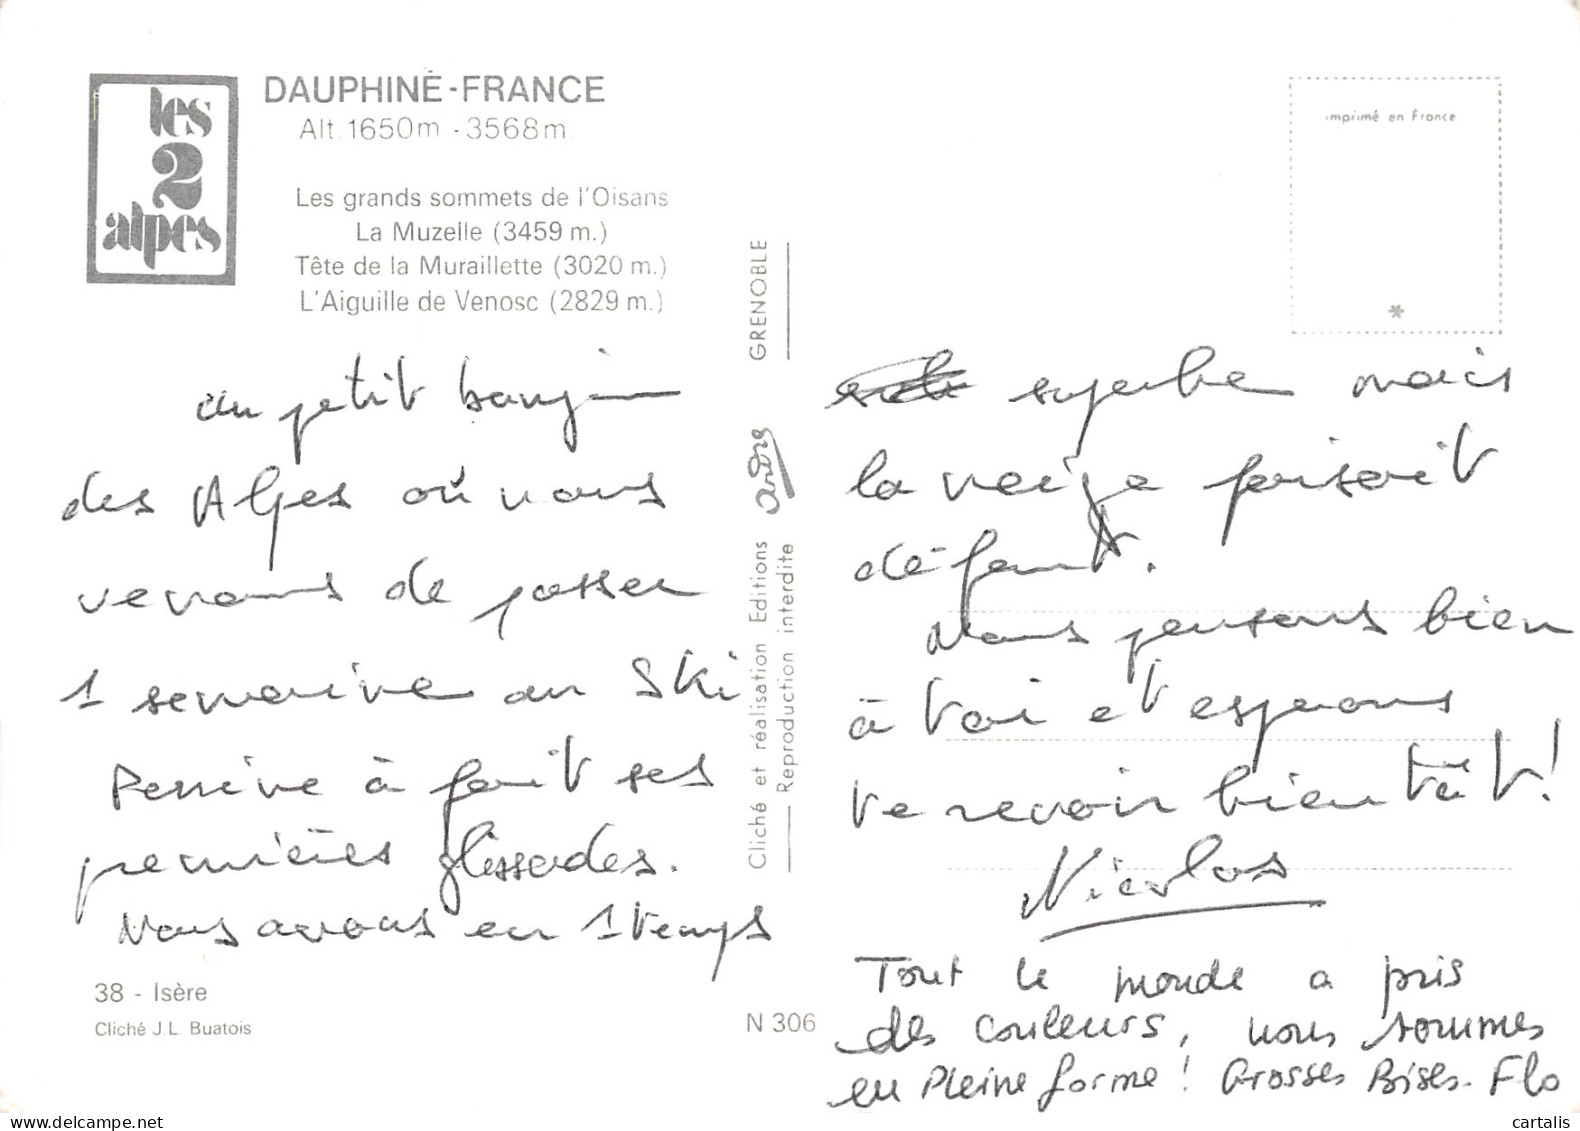 les
2
alpes
DAUPHINÉ-FRANCE
Alt. 1650m - 3568m.
Les grands sommets de l'Oisans
La Muzelle (3459 m.)
Tête de la Muraillette (3020 m.)
L'Aiguille de Venosc (2829 m.)
un petit bonjour
des Alpes où nous
venons de passer
1 semaine au Ski
Perrine à fait ses
premières glissades.
Nous avons eu 1 temps
38 - Isère
Cliché J.L. Buatois
N 306
Cliché et réalisation Editions André GRENOBLE
Reproduction interdite
imprimé en France
*
superbe mais
la neige faisait
défaut.
Nous pensons bien
à toi et espérons
te revoir bientôt!
Nicolas
Tout le monde a pris
des couleurs, nous sommes
en pleine forme! Grosses Bises. Flo
cartalis